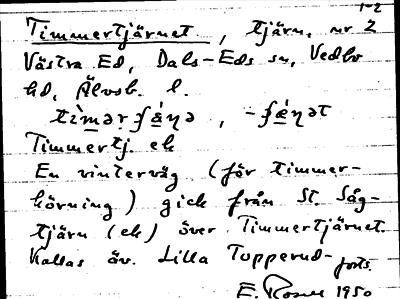 1-2
Timmertjärnet, tjärn, nr 2
Västra Ed, Dals-Eds sn, Vedbo
hd, Älvsb. l.
Timmertj. ek
En vinterväg (för timmer-
körning) gick från St. Såg-
tjärn (ek) över Timmertjärnet.
Kallas äv. Lilla Topperud-
forts.
E. 1950